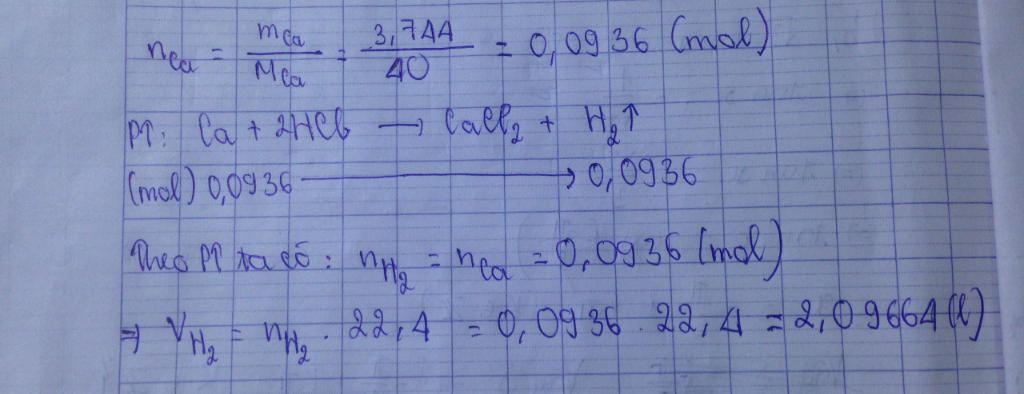 n_Ca = m_Ca / M_Ca = 3,744 / 40 = 0,0936 (mol)
PT: Ca + 2HCl → CaCl₂ + H₂↑
(mol) 0,0936 → 0,0936
Theo PT ta có: n_H₂ = n_Ca = 0,0936 (mol)
⇒ V_H₂ = n_H₂ . 22,4 = 0,0936 . 22,4 = 2,09664 (l)